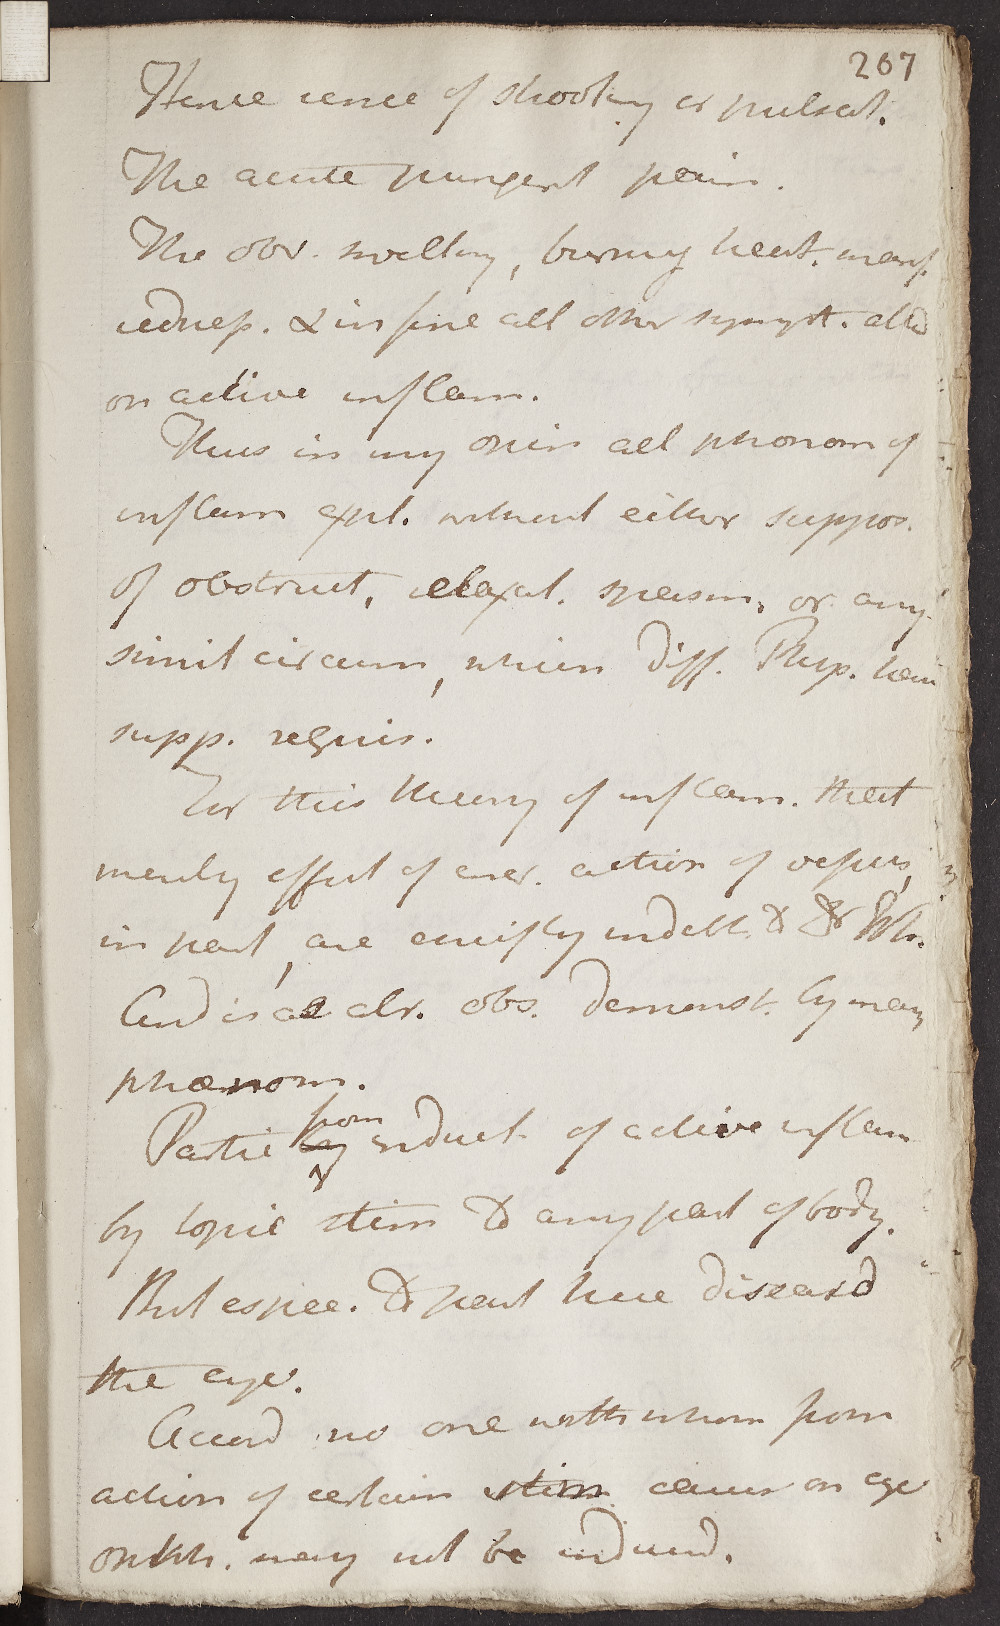 267
Hence sence of shooting or pulsat.
The acute pungent pain.
The obv. swelling, burning heat.
redness. & in fine all other sympt. attd
on active inflam.
Thus in my opin all phonom of
inflam expl. without either suppos.
of obstruct, relaxat. spasm, or any
simil circum, which Diff. Phys. have
supp. requis.
For this theory of inflam. that
merely effect of incr. action of vessels,
in part, are chiefly indebt. to Dr
And is as alr. obs. demonst. by many
phænom.
Partic from induct. of active inflam
by topic stim to any part of body.
But espec. to part here diseasd
the eye.
Accord no one with whom from
action of certain stim causes on eye
ophth. may not be inducd.